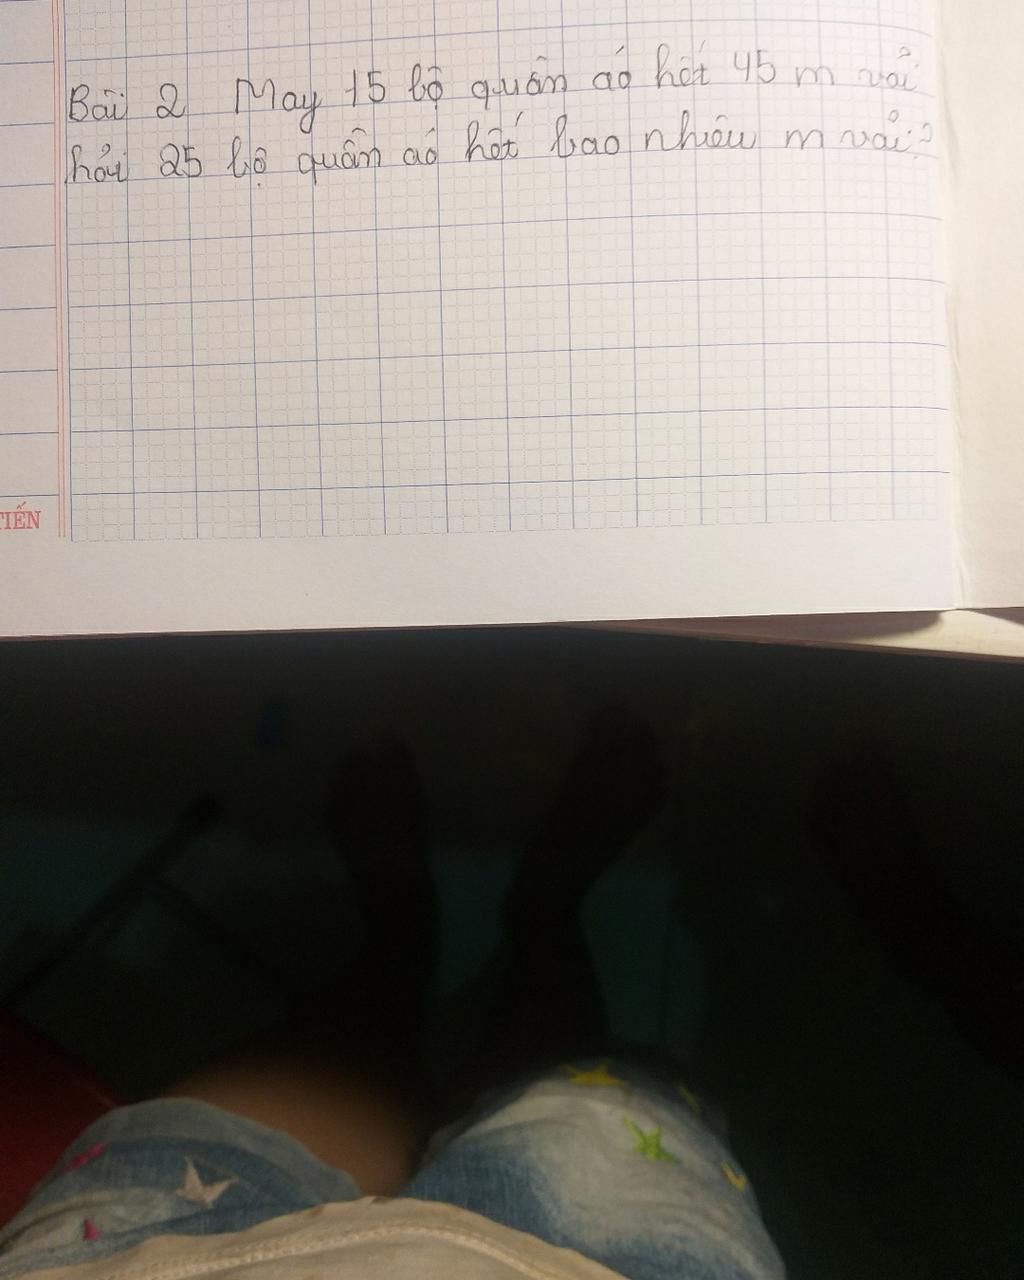 Bài 2 May 15 bộ quần áo hết 45 m vải
hỏi 25 bộ quần áo hết bao nhiêu m vải?
TIẾN